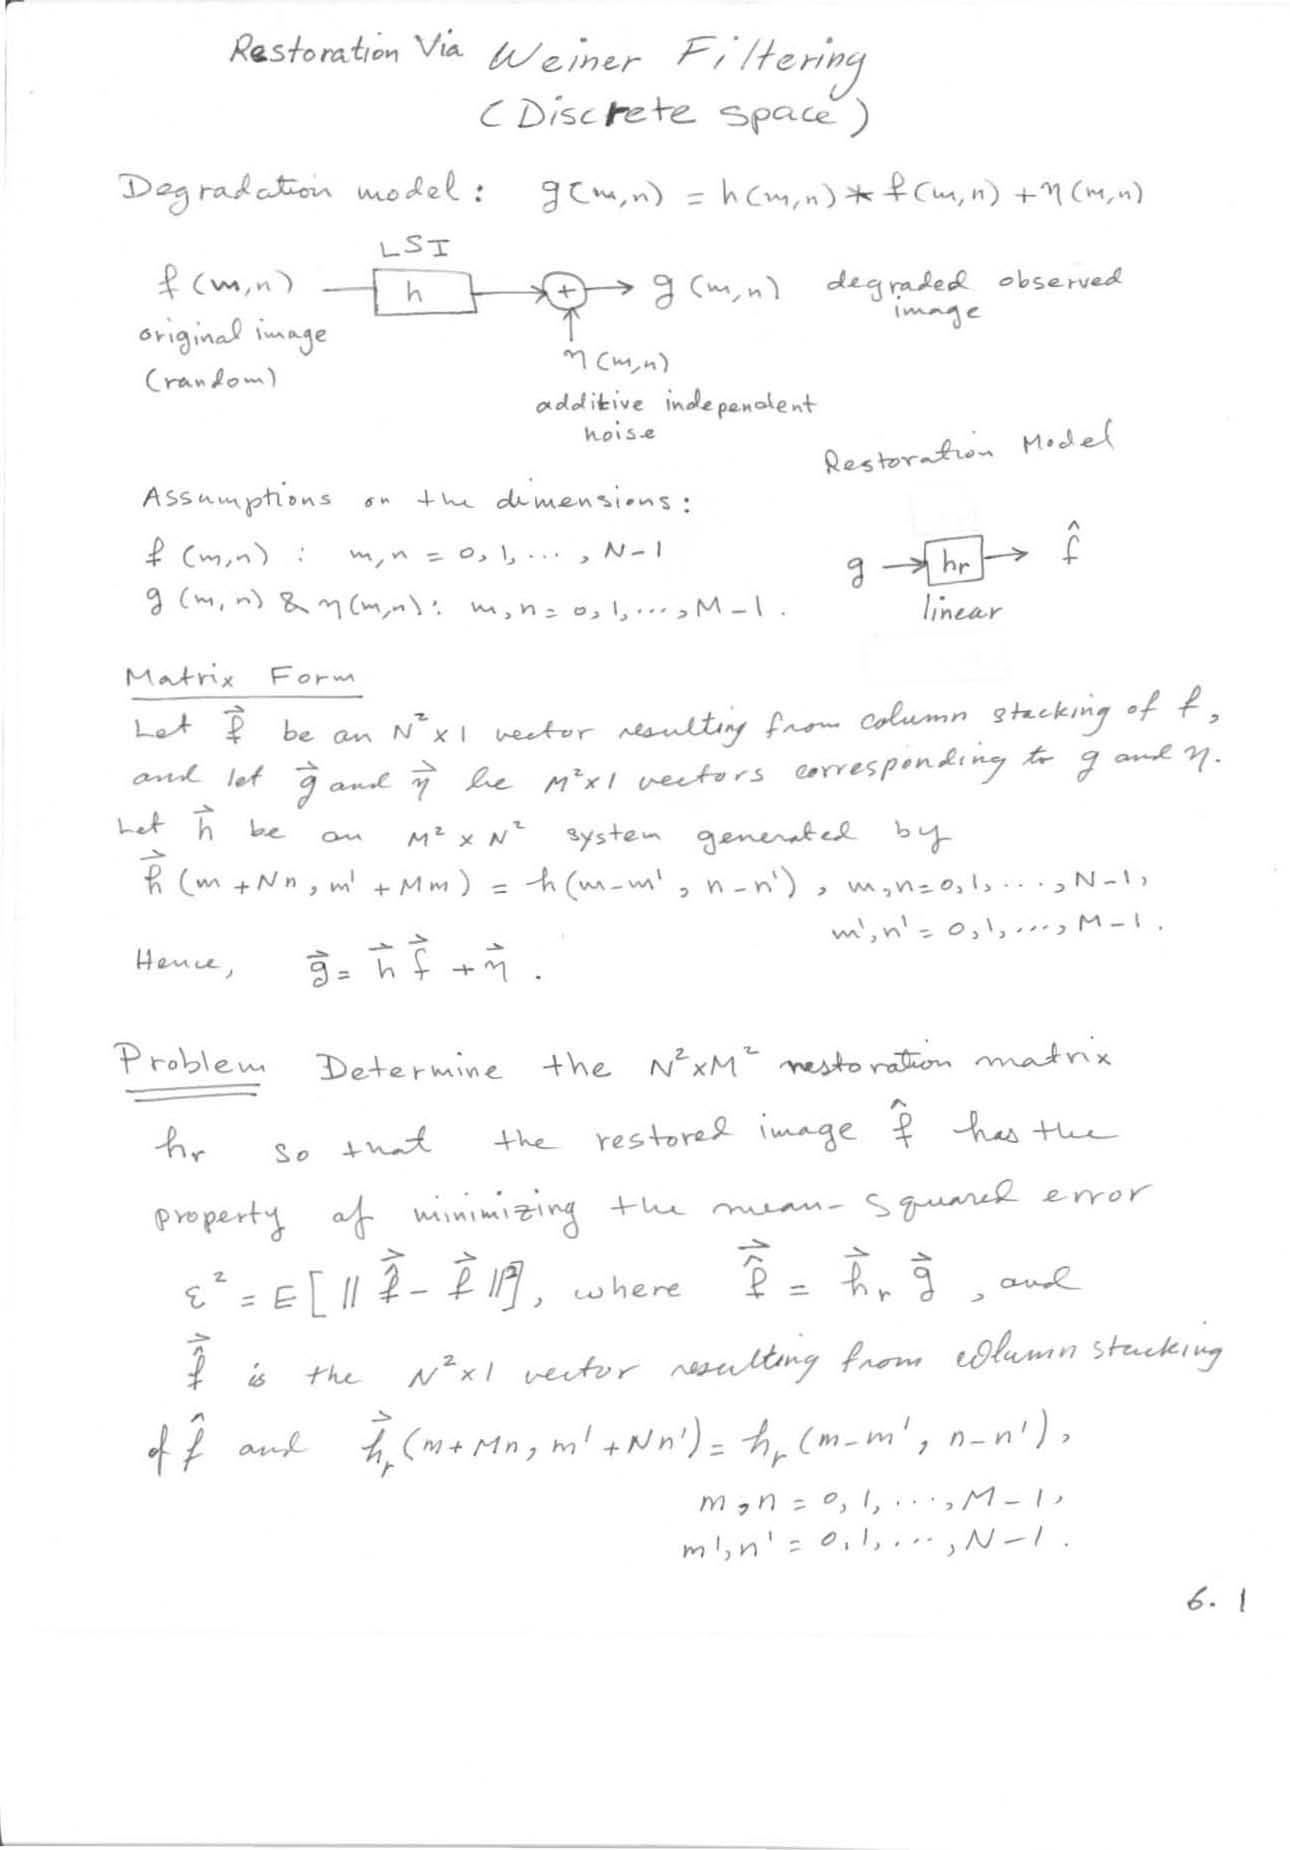 Restoration Via Weiner Filtering
(Discrete space)
Degradation model: g(m,n) = h(m,n) * f(m,n) + η(m,n)
LSI
f(m,n) h + g(m,n) degraded observed
image
original image
(random)
η(m,n)
additive independent
noise
Restoration Model
Assumptions on the dimensions:
f(m,n) : m,n = 0,1,..., N-1
g(m,n) & η(m,n): m,n = 0,1,...,M-1.
g hr f̂
linear
Matrix Form
Let f⃗ be an N²x1 vector resulting from column stacking of f,
and let g⃗ and η⃗ be M²x1 vectors corresponding to g and η.
Let h⃗ be an M² x N² system generated by
h⃗(m+Nn, m'+Mm) = h(m-m', n-n'), m,n=0,1,...,N-1,
m',n' = 0,1,...,M-1.
Hence, g⃗ = h⃗ f⃗ + η⃗.
Problem Determine the N²xM² restoration matrix
hr so that the restored image f̂ has the
property of minimizing the mean-squared error
ε² = E[||f̂⃗ - f⃗||²], where f̂⃗ = h⃗r g⃗, and
f̂⃗ is the N²x1 vector resulting from column stacking
of f̂ and h⃗r(m+Mn, m'+Nn') = hr(m-m', n-n'),
m,n = 0,1,...,M-1,
m',n' = 0,1,...,N-1.
6.1